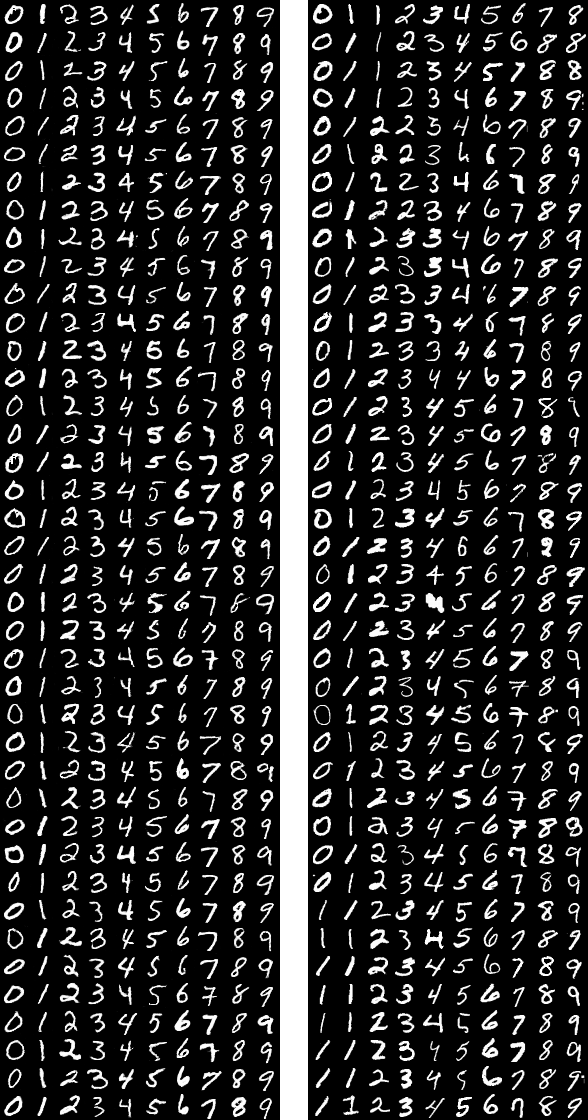 0 1 2 3 4 5 6 7 8 9
0 1 2 3 4 5 6 7 8 9
0 1 2 3 4 5 6 7 8 9
0 1 2 3 4 5 6 7 8 9
0 1 2 3 4 5 6 7 8 9
0 1 2 3 4 5 6 7 8 9
0 1 2 3 4 5 6 7 8 9
0 1 2 3 4 5 6 7 8 9
0 1 2 3 4 5 6 7 8 9
0 1 2 3 4 5 6 7 8 9
0 1 2 3 4 5 6 7 8 9
0 1 2 3 4 5 6 7 8 9
0 1 2 3 4 5 6 7 8 9
0 1 2 3 4 5 6 7 8 9
0 1 2 3 4 5 6 7 8 9
0 1 2 3 4 5 6 7 8 9
0 1 2 3 4 5 6 7 8 9
0 1 2 3 4 5 6 7 8 9
0 1 2 3 4 5 6 7 8 9
0 1 2 3 4 5 6 7 8 9
0 1 2 3 4 5 6 7 8 9
0 1 2 3 4 5 6 7 8 9
0 1 2 3 4 5 6 7 8 9
0 1 2 3 4 5 6 7 8 9
0 1 2 3 4 5 6 7 8 9
0 1 2 3 4 5 6 7 8 9
0 1 2 3 4 5 6 7 8 9
0 1 2 3 4 5 6 7 8 9
0 1 2 3 4 5 6 7 8 9
0 1 2 3 4 5 6 7 8 9
0 1 2 3 4 5 6 7 8 9
0 1 2 3 4 5 6 7 8 9
0 1 2 3 4 5 6 7 8 9
0 1 2 3 4 5 6 7 8 9
0 1 2 3 4 5 6 7 8 9
0 1 2 3 4 5 6 7 8 9
0 1 2 3 4 5 6 7 8 9
0 1 2 3 4 5 6 7 8 9
0 1 2 3 4 5 6 7 8 9
0 1 2 3 4 5 6 7 8 9
0 1 1 2 3 4 5 6 7 8
0 1 1 2 3 4 5 6 8 8
0 1 1 2 3 4 5 7 8 8
0 1 1 2 3 4 6 7 8 9
0 1 2 2 3 4 6 7 8 9
0 1 2 2 3 6 6 7 8 9
0 1 2 2 3 4 6 7 8 9
0 1 2 2 3 4 6 7 8 9
0 1 2 3 3 4 6 7 8 9
0 1 2 3 3 4 6 7 8 9
0 1 2 3 3 4 6 7 8 9
0 1 2 3 3 4 6 7 8 9
0 1 2 3 3 4 6 7 8 9
0 1 2 3 4 4 6 7 8 9
0 1 2 3 4 5 6 7 8 9
0 1 2 3 4 5 6 7 8 9
0 1 2 3 4 5 6 7 8 9
0 1 2 3 4 5 6 7 8 9
0 1 2 3 4 5 6 7 8 9
0 1 2 3 4 6 6 7 2 9
0 1 2 3 4 5 6 7 8 9
0 1 2 3 4 5 6 7 8 9
0 1 2 3 4 5 6 7 8 9
0 1 2 3 4 5 6 7 8 9
0 1 2 3 4 5 6 7 8 9
0 1 2 3 4 5 6 7 8 9
0 1 2 3 4 5 6 7 8 9
0 1 2 3 4 5 6 7 8 9
0 1 2 3 4 5 6 7 8 9
0 1 2 3 4 5 6 7 8 8
0 1 2 3 4 5 6 7 8 9
0 1 2 3 4 5 6 7 8 9
1 1 2 3 4 5 6 7 8 9
1 1 2 3 4 5 6 7 8 9
1 1 2 3 4 5 6 7 8 9
1 1 2 3 4 5 6 7 8 9
1 1 2 3 4 5 6 7 8 9
1 1 2 3 4 5 6 7 8 9
1 1 2 3 4 5 6 7 8 9
1 1 2 3 4 5 6 7 8 8